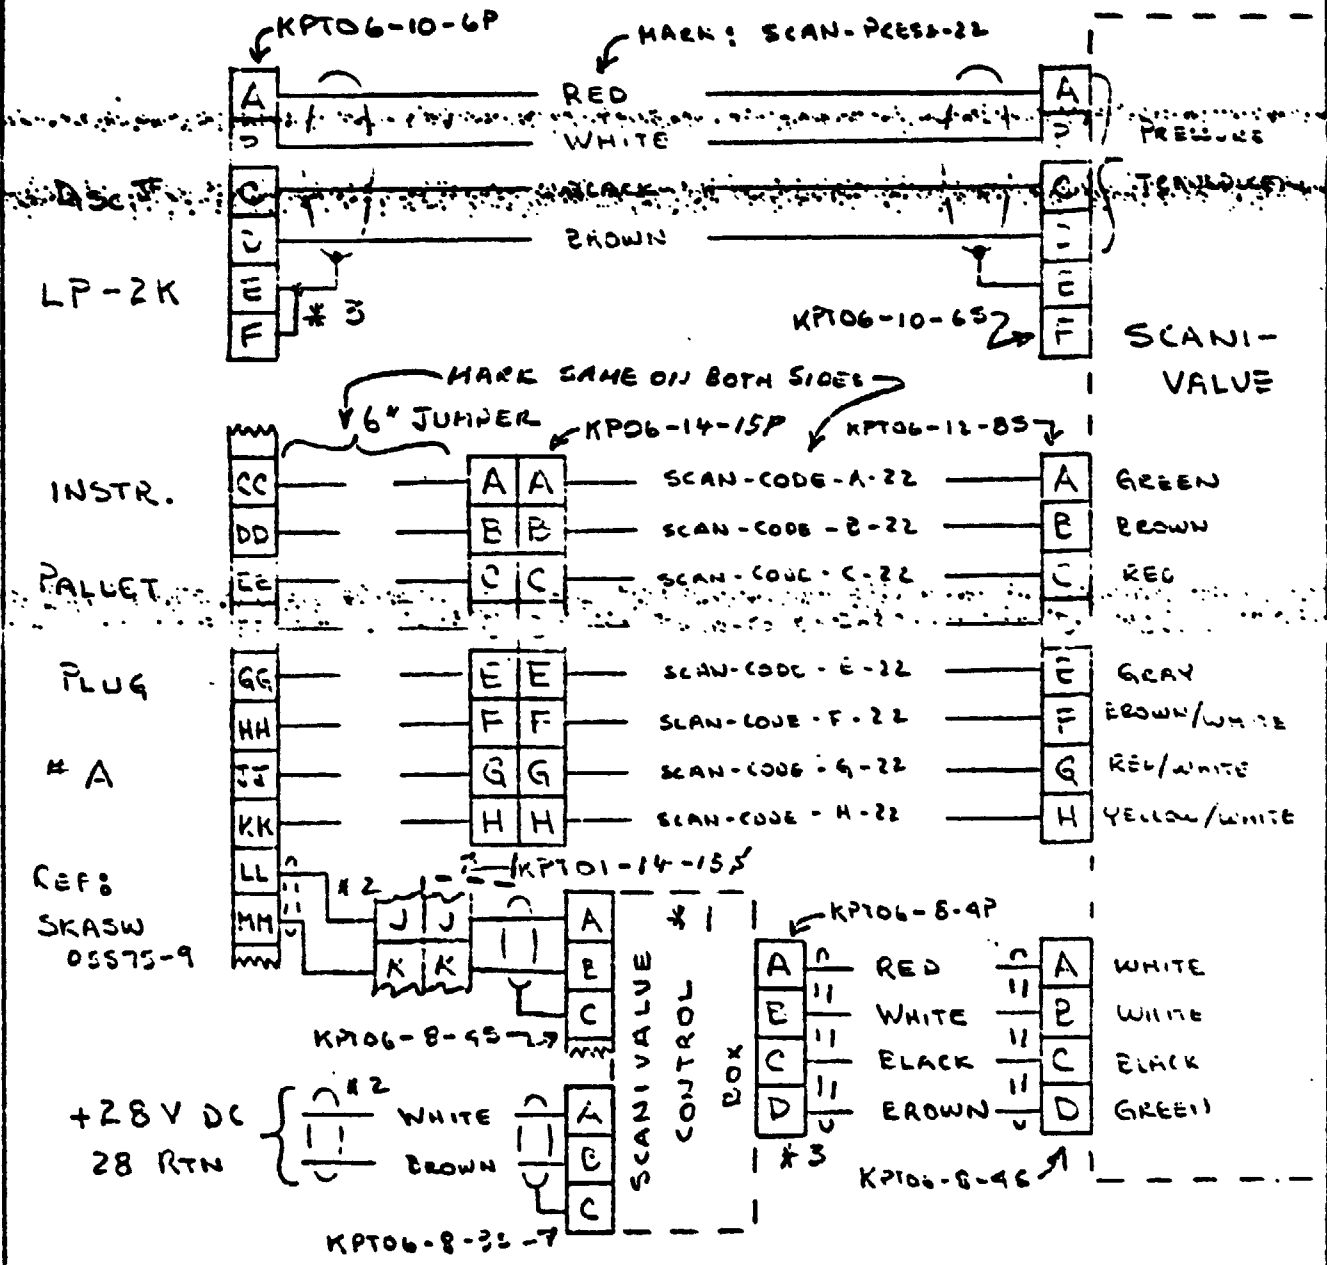 KPT06-10-6P
MARK: SCAN-PRESS-22
A RED A
WHITE PRESSURE
DISC
C BLACK C TRANSDUCER
BROWN
LP-2K
E E
F * 3 F
KPT06-10-6S
SCANI-
VALUE
MARK SAME ON BOTH SIDES
6" JUMPER
KP06-14-15P
KPT06-12-8S
INSTR.
CC A A SCAN-CODE-A-22 A GREEN
DD B B SCAN-CODE-B-22 B BROWN
PALLET
EE C C SCAN-CODE-C-22 C RED
PLUG
GG E E SCAN-CODE-E-22 E GRAY
HH F F SCAN-CODE-F-22 F BROWN/WHITE
# A
JJ G G SCAN-CODE-G-22 G RED/WHITE
KK H H SCAN-CODE-H-22 H YELLOW/WHITE
KPT01-14-15S
REF:
SKASW
05575-9
LL * 2 J J A
MM K K B
C
KPT06-8-4S
SCANIVALUE
CONTROL
BOX
* 1
KPT06-8-4P
A RED A WHITE
B WHITE B WHITE
C BLACK C BLACK
D BROWN D GREEN
* 3
KPT06-8-4S
+28 V DC * 2 WHITE A
28 RTN BROWN B
C
KPT06-8-3S